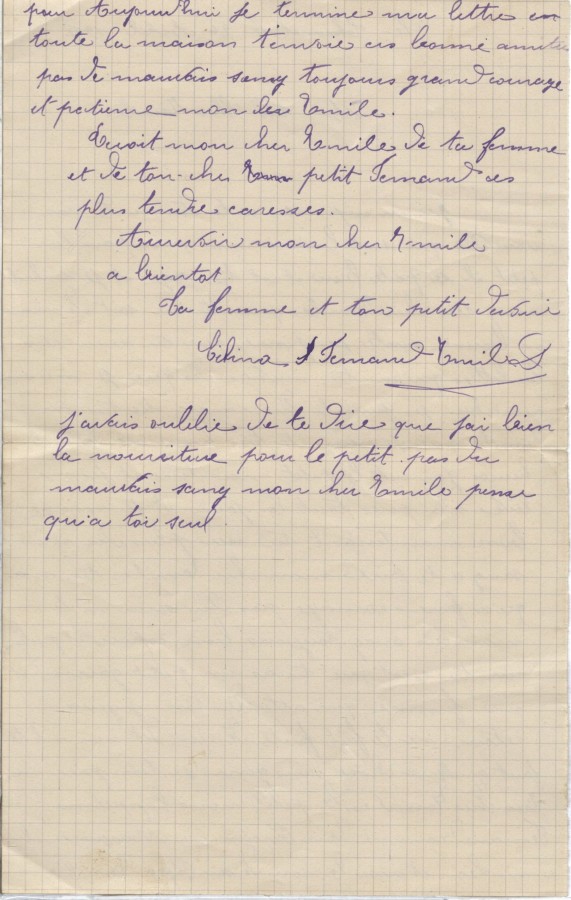 pour Aujourd'hui je termine ma lettre en
toute la maison t'envoie ces bonne amitie
pas de mauvais sang toujours grand courage
et patience mon cher Emile.
Recoit mon cher Emile de ta femme
et de ton cher petit Fernand ces
plus tendre caresses.
Aurevoir mon cher Emile
a bientot
Ta femme et ton petit
Célina Fernand Emile
j'avais oublie de te dire que j'ai bien
la nourriture pour le petit. pas du
mauvais sang mon cher Emile pense
qu'a toi seul.